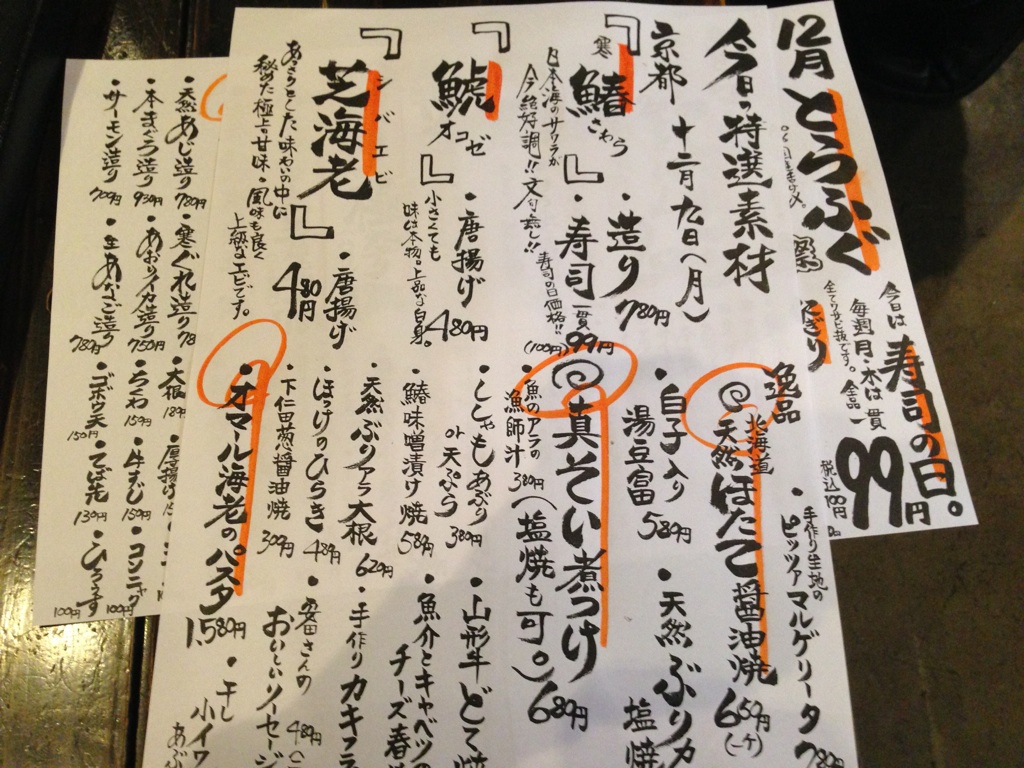 12月 とらふぐ
今日は 寿司の日。
毎週月・木は一貫
全品 99円
税込100円
全てワサビ抜です。
にぎり
今日の特選素材
京都 十二月九日(月)
『寒鰆 さわら』
・造り 780円
・寿司 一貫 99円
(100円)
寿司の日価格!!
日本海のサワラが
今絶好調!! 文句無し!!
『鯱 オコゼ』
・唐揚げ 480円
小さくても
味は本物。上品な白身。
『芝海老 シバエビ』
・唐揚げ 480円
あっさりとした味わいの中に
秘めた極上甘味・風味も良く
上級なエビです。
逸品
北海道
天然ほたて醤油焼 650円
(一ケ)
・手作り生地の
ピッツァマルゲリータ 780円
・白子入り
湯豆富 580円
・天然ぶりカ
塩焼
真そい煮つけ
(塩焼も可。) 680円
・魚のアラの
漁師汁 380円
・ししゃもあぶり
or 天ぷら 380円
・山形牛どて焼
・鰆味噌漬け焼 580円
・魚介とキャベツの
チーズ春
・天然ぶりアラ大根 620円
・手作りカキフラ
・ほっけのひらき 480円
・安田さんの
おいしいソーセージ
480円
・下仁田葱醤油焼 300円
・オマール海老のパスタ
1.580円
・干し
小イワ
あぶ
・天然あじ造り 780円
・寒ぐれ造り 78
・大根 180円
・唐揚げ
・本まぐろ造り 930円
・あおりイカ造り 750円
・ちくわ 150円
・牛すじ 150円
・コンニャク 100円
・サーモン造り 700円
・生あなご造り 780円
・ゴボウ天 150円
・てば先 130円
・ひろうす 100円